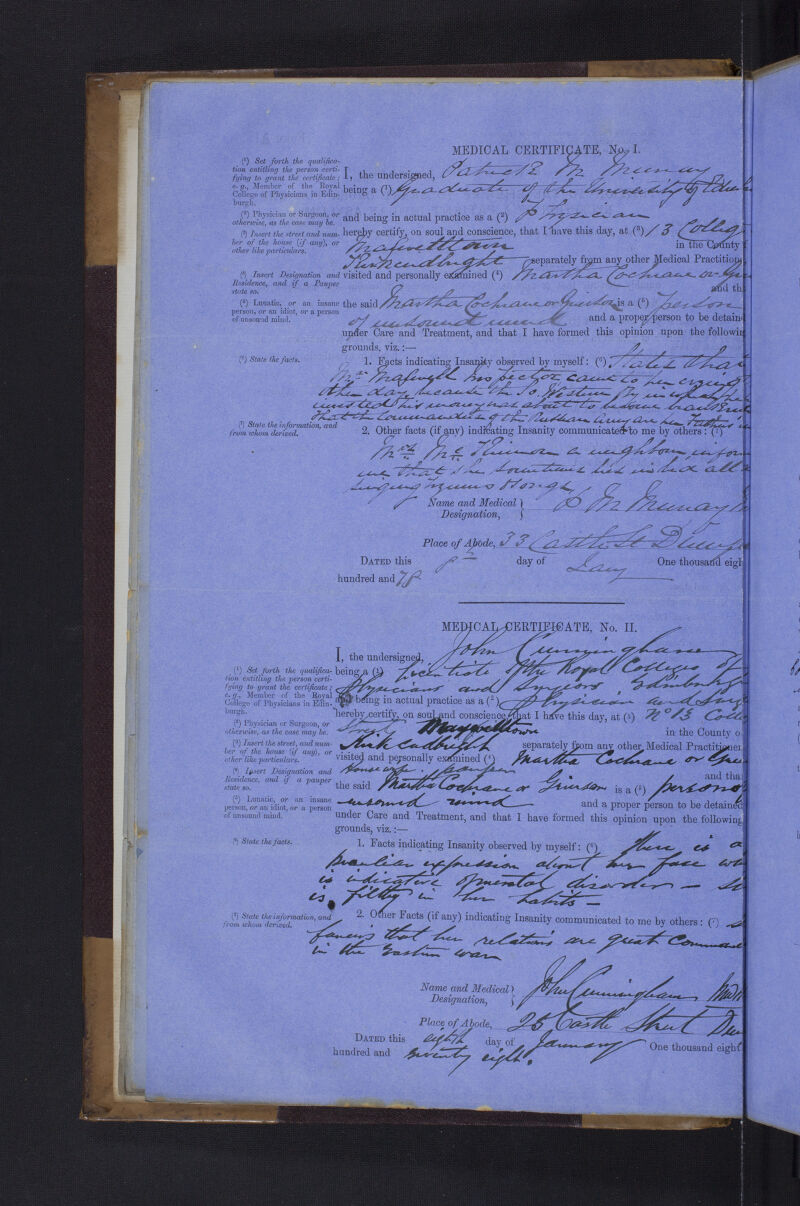 MEDICAL CERTIFICATE, No. I.
(¹) Set forth the qualifica-
tion entitling the person certi-
fying to grant the certificate;
e. g., Member of the Royal
College of Physicians in Edin-
burgh.
I, the undersigned, Patrick M Murray
being a (¹) Graduate of the University of Edin
(²) Physician or Surgeon, or
otherwise, as the case may be.
and being in actual practice as a (²) Physician
(³) Insert the street and num-
ber of the house (if any), or
other like particulars.
hereby certify, on soul and conscience, that I have this day, at (³) 13 College
Maxwelltown in the County
Kirkcudbright separately from any other Medical Practition
(⁴) Insert Designation and
Residence, and if a Pauper
state so.
visited and personally examined (⁴) Martha Cochrane or
and tha
(⁵) Lunatic, or an insane
person, or an idiot, or a person
of unsound mind.
the said Martha Cochrane or Grierson is a (⁵) person
of unsound mind and a proper person to be detain
under Care and Treatment, and that I have formed this opinion upon the followin
grounds, viz.:—
(⁶) State the facts.
1. Facts indicating Insanity observed by myself: (⁶) States that
Mr Maxwell Inspector came to her
other day because the So. Western Ry in which he
invested his money was about to become
that the Commanders of the Russian army are her
(⁷) State the information, and
from whom derived.
2. Other facts (if any) indicating Insanity communicated to me by others: (⁷)
Mrs Mc a neighbour inform
me that she sometimes
singing hymns & songs
Name and Medical
Designation,
P M Murray
Place of Abode, 33 Castle St Dumf
DATED this 8th day of Jany One thousand eigh
hundred and 78
MEDICAL CERTIFICATE, No. II.
I, the undersigned, John Cunningham
(¹) Set forth the qualifica-
tion entitling the person certi-
fying to grant the certificate;
e. g., Member of the Royal
College of Physicians in Edin-
burgh.
being a (¹) Licentiate of the Royal Colleges of
Physicians and Surgeons Edinburgh
and being in actual practice as a (²) Physician and Surg
(²) Physician or Surgeon, or
otherwise, as the case may be.
hereby certify, on soul and conscience, that I have this day, at (³) No 13 Colle
Street Maxwelltown in the County o
(³) Insert the street, and num-
ber of the house (if any), or
other like particulars.
Kirkcudbright separately from any other Medical Practitioner
visited and personally examined (⁴) Martha Cochrane or Grie
(⁴) Insert Designation and
Residence, and if a pauper
state so.
Housewife, pauper and tha
the said Martha Cochrane or Grierson is a (⁵) person o
(⁵) Lunatic, or an insane
person, or an idiot, or a person
of unsound mind.
unsound mind and a proper person to be detained
under Care and Treatment, and that I have formed this opinion upon the following
grounds, viz.:—
(⁶) State the facts.
1. Facts indicating Insanity observed by myself: (⁶) There is a
peculiar expression about her face wh
is indicative of mental disorder — S
is filthy in her habits —
(⁷) State the information, and
from whom derived.
2. Other Facts (if any) indicating Insanity communicated to me by others: (⁷) S
fancies that her relations are great Command
in the Eastern war
Name and Medical
Designation,
John Cunningham
Place of Abode, 25 Castle Street Dum
DATED this eighth day of January One thousand eight
hundred and seventy eight.